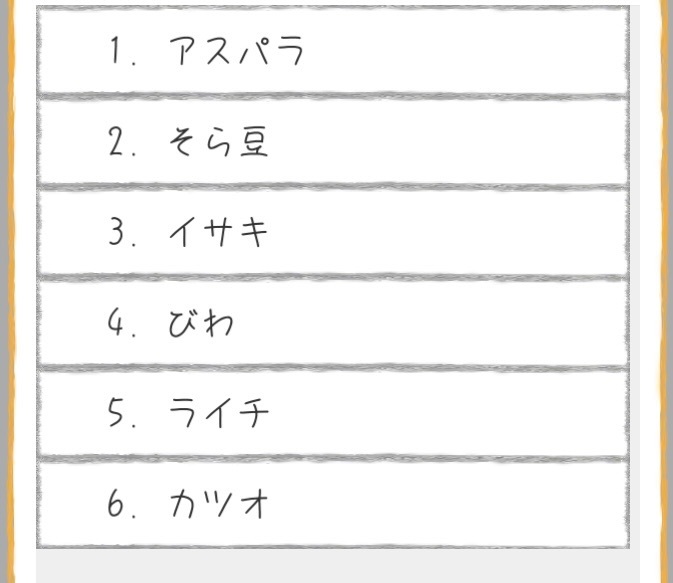 1. アスパラ
2. そら豆
3. イサキ
4. びわ
5. ライチ
6. カツオ